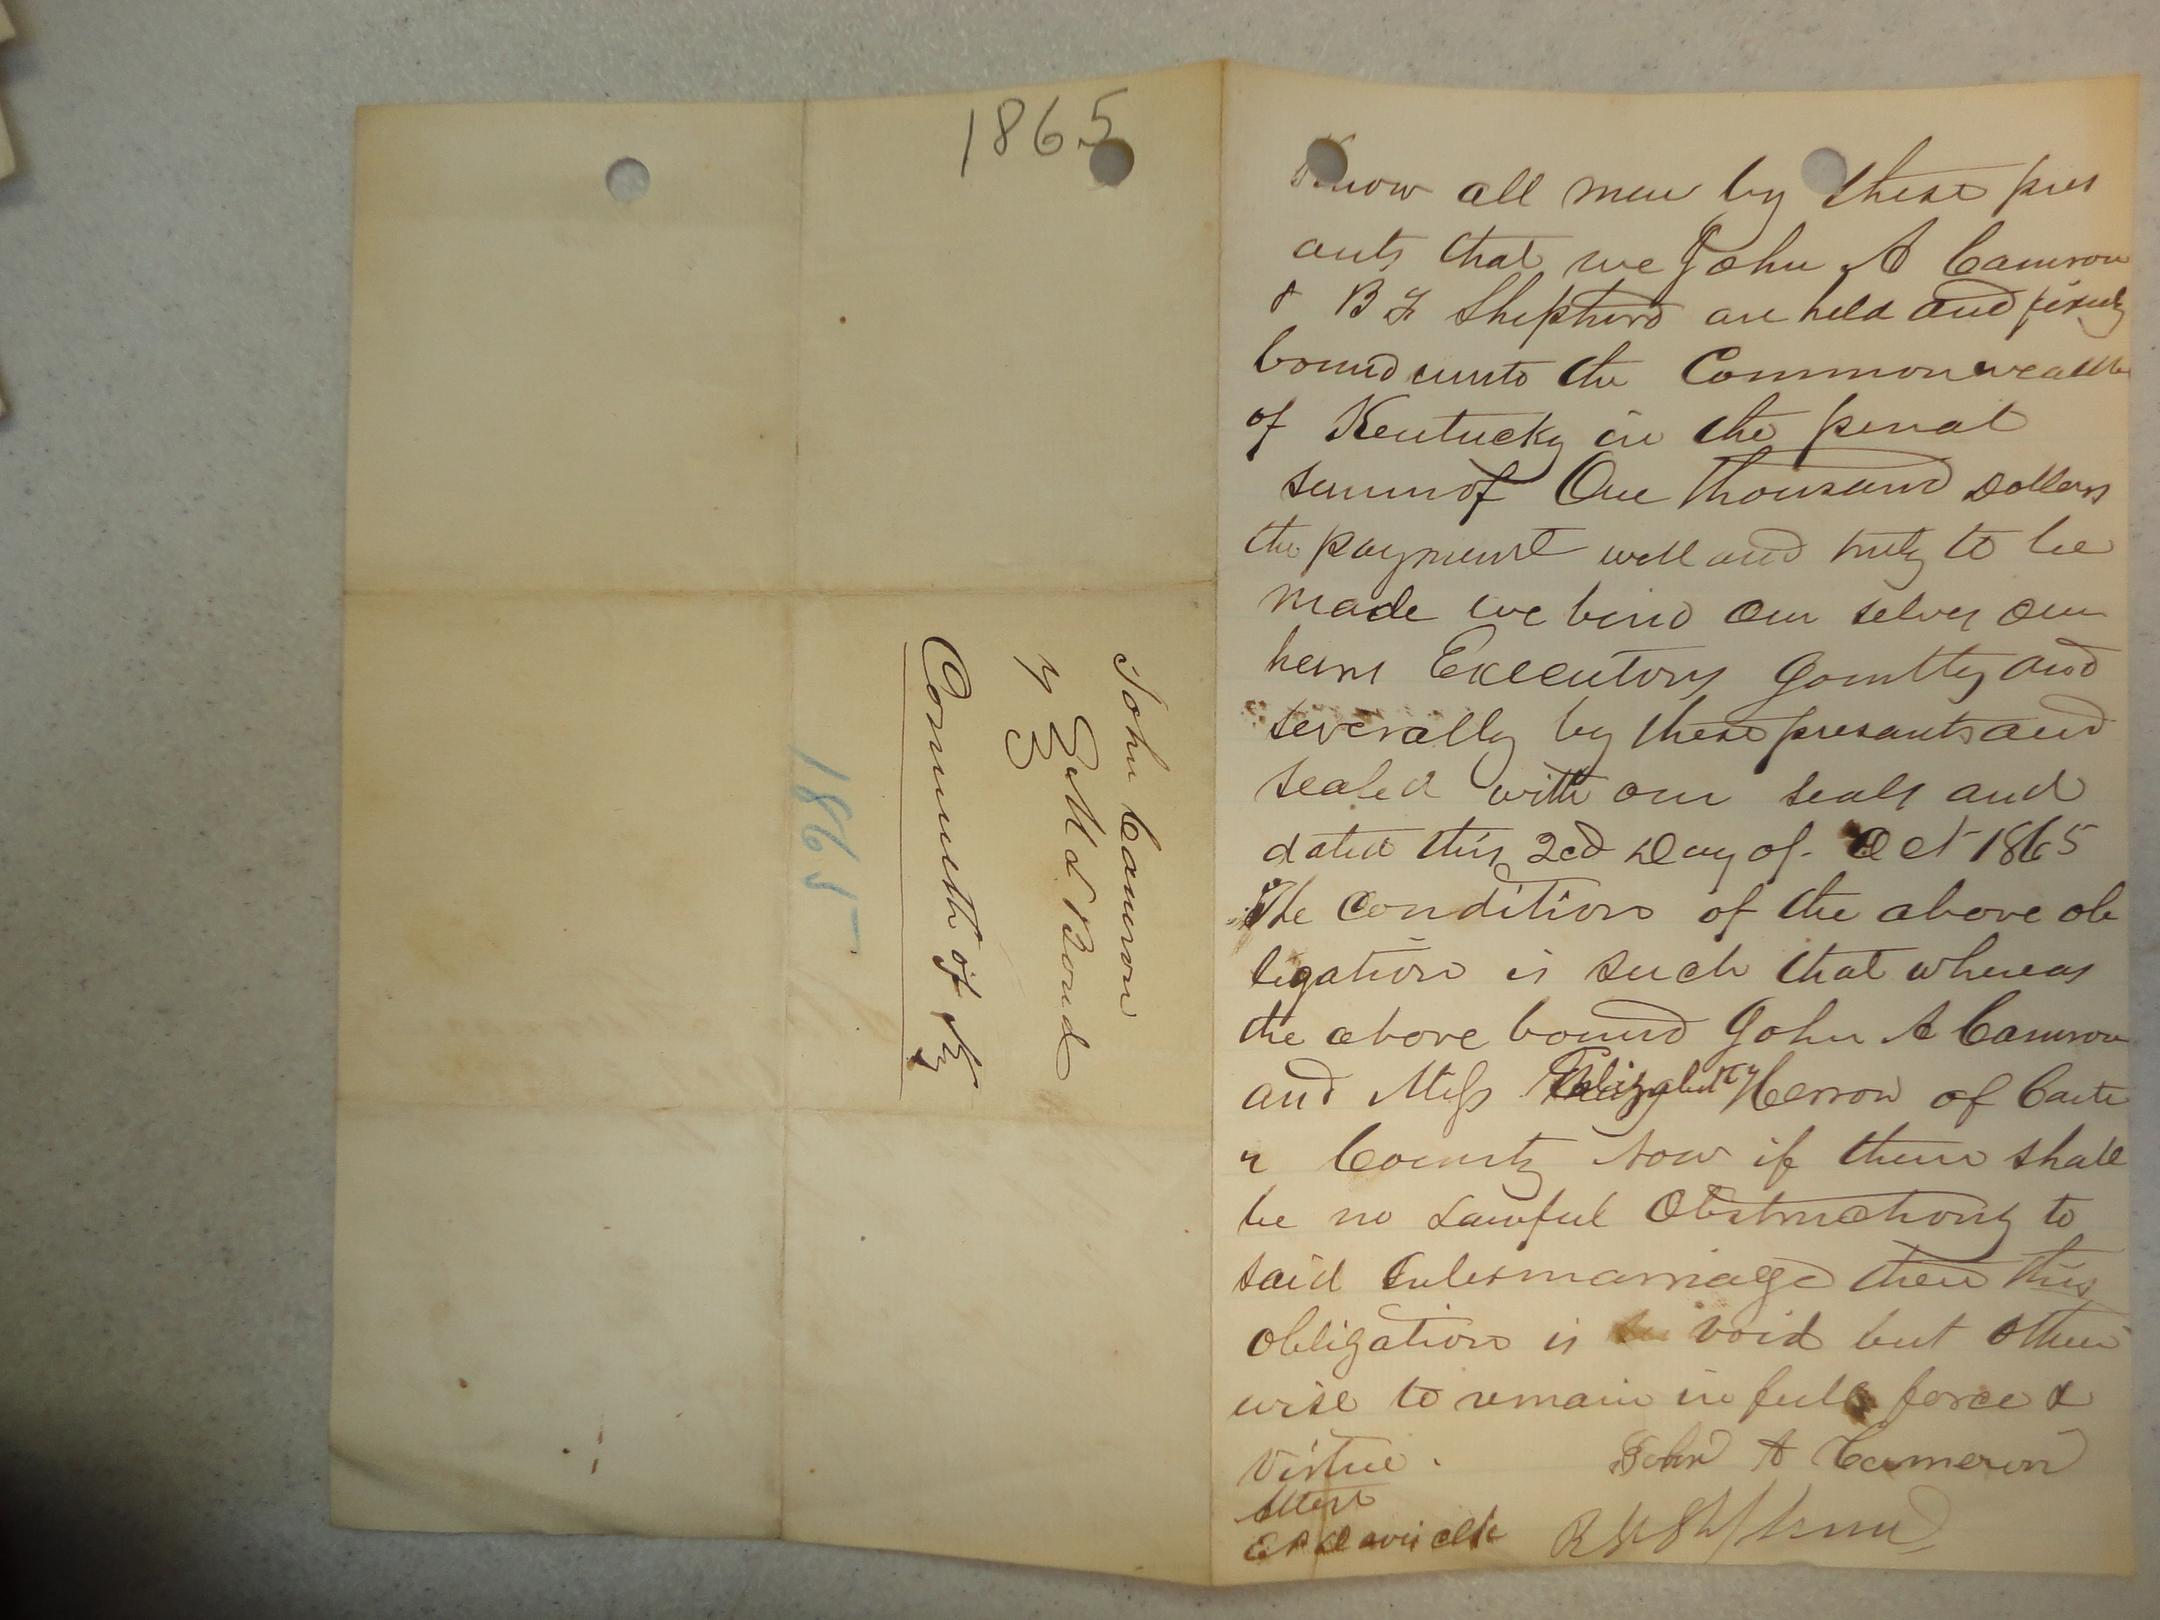 1865
John Cameron
& Bond
Comwlth of Ky
1865
Know all men by these pres
ants that we John A Cameron
& B F Shepherd are held and firmly
bound unto the Commonwealth
of Kentucky in the penal
sum of One Thousand Dollars
the payment well and truly to be
made we bind our selves our
heirs Executors Jointly and
severally by these presants and
sealed with our seals and
dated this 2cd Day of Oct 1865
The Condition of the above ob
ligation is such that whereas
the above bound John A Cameron
and Miss Elizabeth Herron of Carte
r County Now if there shall
be no Lawful Obstructions to
said Intermarriage then this
obligation is void but other
wise to remain in full force &
virtue . John A Cameron
Attest
E P Davis clk